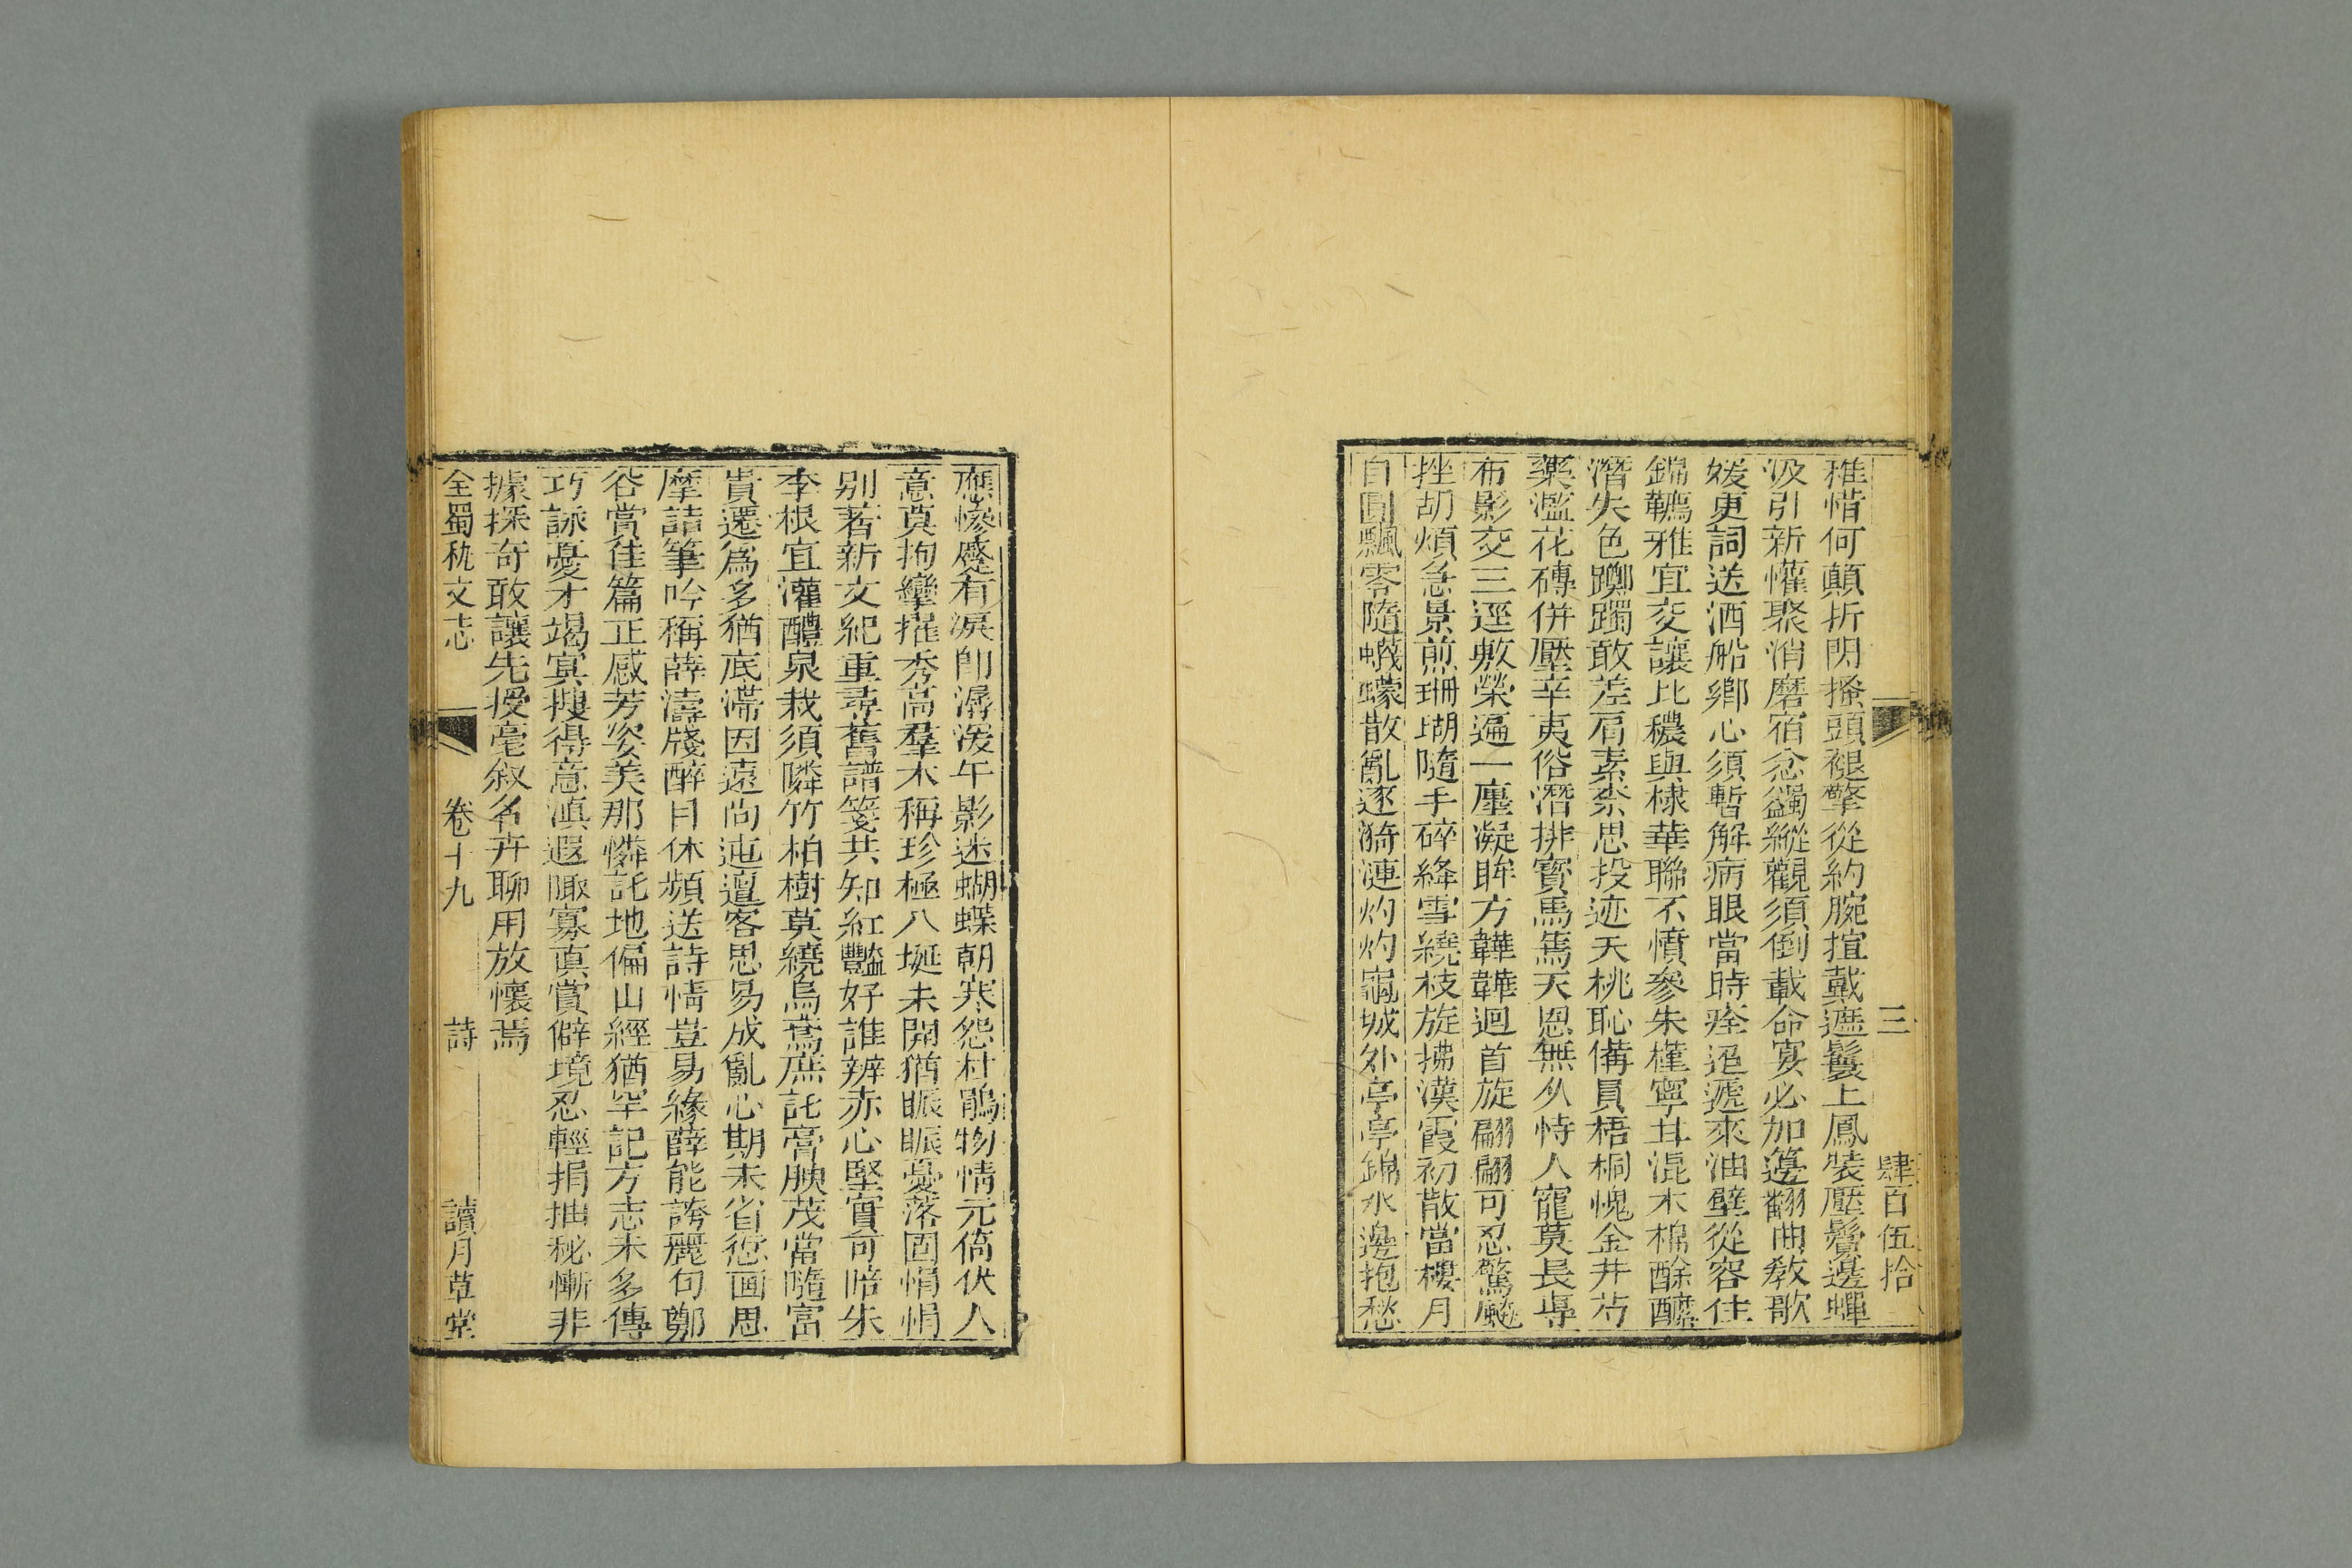 三　肆百伍拾
稚惜何顛折閃搔頭褪擎從約腕揎戴遮鬟上鳳裝壓鬢邊蟬
汲引新懽聚消磨宿忿蠲縱觀須倒載命宴必加籩翻曲教歌
媛更詞送酒船鄉心須暫解病眼當時痊迢遞來油壁從容住
錦韉雅宜交讓比穠與棣華聯不憤參朱槿寧甘混木棉酴醾
潛失色躑躅敢差肩素柰思投迹夭桃恥備員梧桐愧金井芍
藥濫花磚併壓辛夷俗潛排寶馬篶天恩無久恃人寵莫長專
布影交三逕敷榮遍一廛凝眸方韡韡迴首旋翩翩可忍驚飈
挫胡煩急景煎珊瑚隨手碎絳雪繞枝旋拂漢霞初散當樓月
自圓飄零隨蠛蠓散亂逐漪漣灼灼龜城外亭亭錦水邊抱愁
應慘蹙有淚卽潺湲午影迷蝴蝶朝寒怨杜鵑物情元倚伏人
意莫拘攣擢秀高羣木稱珍極八埏未開猶脤脤憂落固悁悁
别著新文紀重尋舊譜箋共知紅豔好誰辨赤心堅實可陪朱
李根宜灌醴泉栽須隣竹柏樹莫繞烏鳶庶託膏腴茂當隨富
貴遷爲多猶底滯因遠尚迍邅客思易成亂心期未省愆画思
摩詰筆吟稱薛濤牋醉目休頻送詩情豈易緣薛能誇麗句鄭
谷賞佳篇正感芳姿美那憐託地偏山經猶罕記方志未多傳
巧詠憂才竭冥搜得意滇遐陬寡真賞僻境忍輕捐抽秘慚非
據探奇敢讓先授毫叙名卉聊用放懷焉
全蜀秇文志　卷十九　詩　讀月草堂